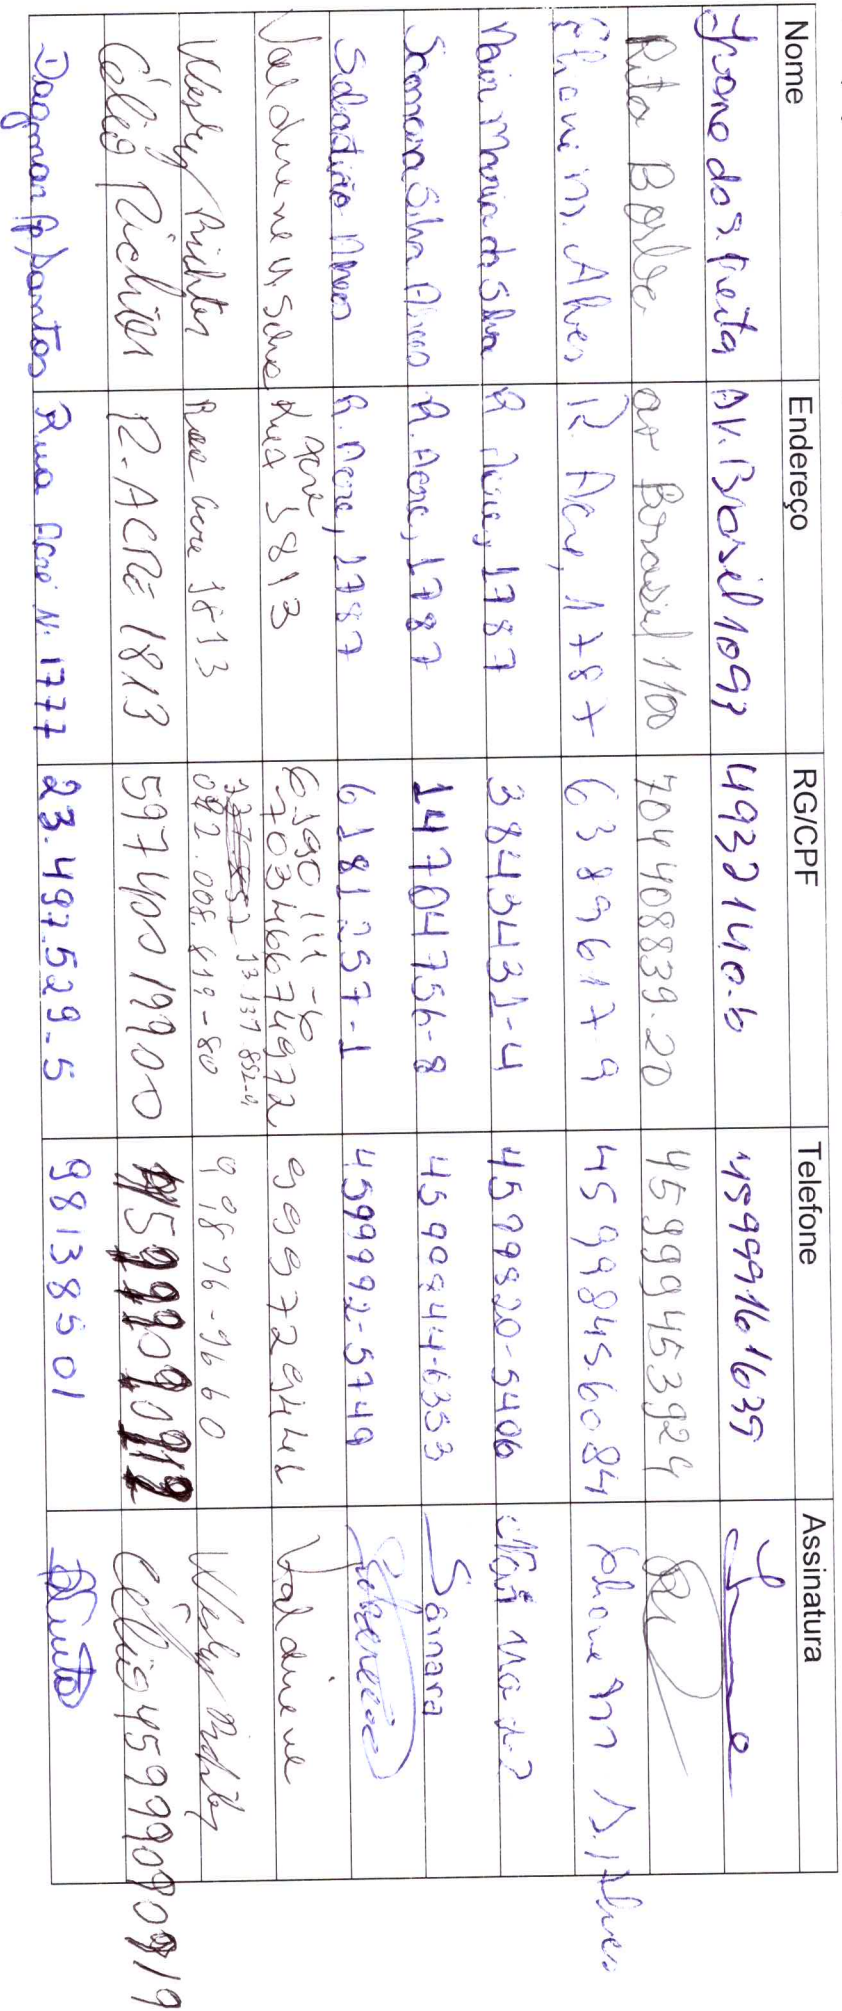 Nome Endereço RG/CPF Telefone Assinatura
Ivone do S. Freita AV. Brasil 1093 4932140-6 45999161635
Rita Borba av Brasil 1100 704408839-20 45999453924
Eliani M. Alves R. Acre, 1787 6389617-9 45998456084 M S. Alves
Nair Maria da Silva R Acre, 1787 3843431-4 4599920-5406
Samara Silva Alves R. Acre, 1787 14704756-8 Samara
Sebastião Alves R. Acre, 1787 6181257-1 4599992-5749
Acre 6190111-6
Valdirene Rua 1813 70346674972 999729441 Valdirene
13.137.852-4
Wesley Richter Rua Acre 1813 092.008.819-80 99876-9660 Wesley Richter
Célio Richter R-ACRE 1813 59740019900 Célio 45999090919
Dagmar Ap Santos Rua Acre N. 1777 23.497.529-5 98138501